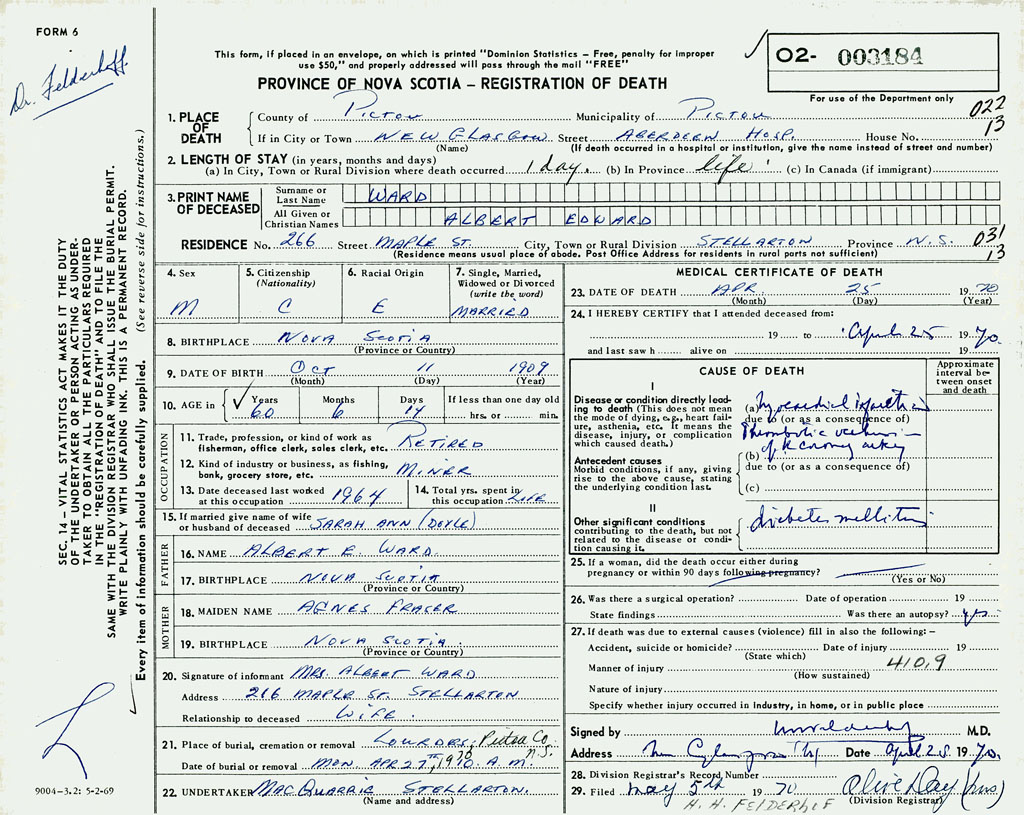 FORM 6
Dr. Felderhof.
This form, if placed in an envelope, on which is printed "Dominion Statistics – Free, penalty for improper
use $50," and properly addressed will pass through the mail "FREE"
PROVINCE OF NOVA SCOTIA – REGISTRATION OF DEATH
O2- 003184
For use of the Department only
022
13
1. PLACE OF DEATH
County of PICTOU Municipality of PICTOU
If in City or Town NEW GLASGOW Street ABERDEEN HOSP. House No.
(Name) (If death occurred in a hospital or institution, give the name instead of street and number)
2. LENGTH OF STAY (in years, months and days)
(a) In City, Town or Rural Division where death occurred 1 day. (b) In Province life (c) In Canada (if immigrant)
3. PRINT NAME OF DECEASED
Surname or Last Name WARD
All Given or Christian Names ALBERT EDWARD
RESIDENCE No. 266 Street MAPLE ST. City, Town or Rural Division STELLARTON Province N.S.
031
13
(Residence means usual place of abode. Post Office Address for residents in rural parts not sufficient)
4. Sex M
5. Citizenship (Nationality) C
6. Racial Origin E
7. Single, Married, Widowed or Divorced (write the word) MARRIED
8. BIRTHPLACE NOVA SCOTIA
(Province or Country)
9. DATE OF BIRTH OCT 11 1909
(Month) (Day) (Year)
10. AGE in Years 60 Months 6 Days 14 If less than one day old hrs. or min.
OCCUPATION
11. Trade, profession, or kind of work as RETIRED
fisherman, office clerk, sales clerk, etc.
12. Kind of industry or business, as fishing, MINER
bank, grocery store, etc.
13. Date deceased last worked at this occupation 1964
14. Total yrs. spent in this occupation LIFE
15. If married give name of wife or husband of deceased SARAH ANN (DOYLE)
FATHER
16. NAME ALBERT E. WARD.
17. BIRTHPLACE NOVA SCOTIA
(Province or Country)
MOTHER
18. MAIDEN NAME AGNES FRASER
19. BIRTHPLACE NOVA SCOTIA.
(Province or Country)
20. Signature of informant MRS. ALBERT WARD
Address 216 MAPLE ST. STELLARTON
Relationship to deceased WIFE.
21. Place of burial, cremation or removal LOURDES, Pictou Co. N.S.
Date of burial or removal MON. APR 27TH, 1970. A.M.
22. UNDERTAKER MACQUARRIE STELLARTON.
(Name and address)
MEDICAL CERTIFICATE OF DEATH
23. DATE OF DEATH APR. 25 1970
(Month) (Day) (Year)
24. I HEREBY CERTIFY that I attended deceased from:
19 to April 25 1970.
and last saw h alive on 19
CAUSE OF DEATH
Approximate interval between onset and death
I
Disease or condition directly leading to death (This does not mean the mode of dying, e.g., heart failure, asthenia, etc. It means the disease, injury, or complication which caused death.)
(a) Myocardial infarction
due to (or as a consequence of)
Thrombotic
(b) of R coronary artery
due to (or as a consequence of)
(c)
Antecedent causes
Morbid conditions, if any, giving rise to the above cause, stating the underlying condition last.
II
Other significant conditions contributing to the death, but not related to the disease or condition causing it.
diabetes mellitus
25. If a woman, did the death occur either during
pregnancy or within 90 days following pregnancy?
(Yes or No)
26. Was there a surgical operation? Date of operation 19
State findings Was there an autopsy? yes
27. If death was due to external causes (violence) fill in also the following: –
Accident, suicide or homicide? Date of injury 19
(State which)
Manner of injury 410,9
(How sustained)
Nature of injury
Specify whether injury occurred in industry, in home, or in public place
Signed by M.D.
Address New Glasgow Date April 28 1970.
28. Division Registrar's Record Number
29. Filed May 5th 1970 Olive Day (Mrs)
H. H. FELDERHOF (Division Registrar)
SEC. 14 – VITAL STATISTICS ACT MAKES IT THE DUTY
OF THE UNDERTAKER OR PERSON ACTING AS UNDER-
TAKER TO OBTAIN ALL THE PARTICULARS REQUIRED
IN THE "REGISTRATION OF DEATH" AND TO FILE THE
SAME WITH THE DIVISION REGISTRAR WHO SHALL ISSUE THE BURIAL PERMIT.
WRITE PLAINLY WITH UNFADING INK. THIS IS A PERMANENT RECORD.
Every item of information should be carefully supplied. (See reverse side for instructions.)
9004-3.2: 5-2-69